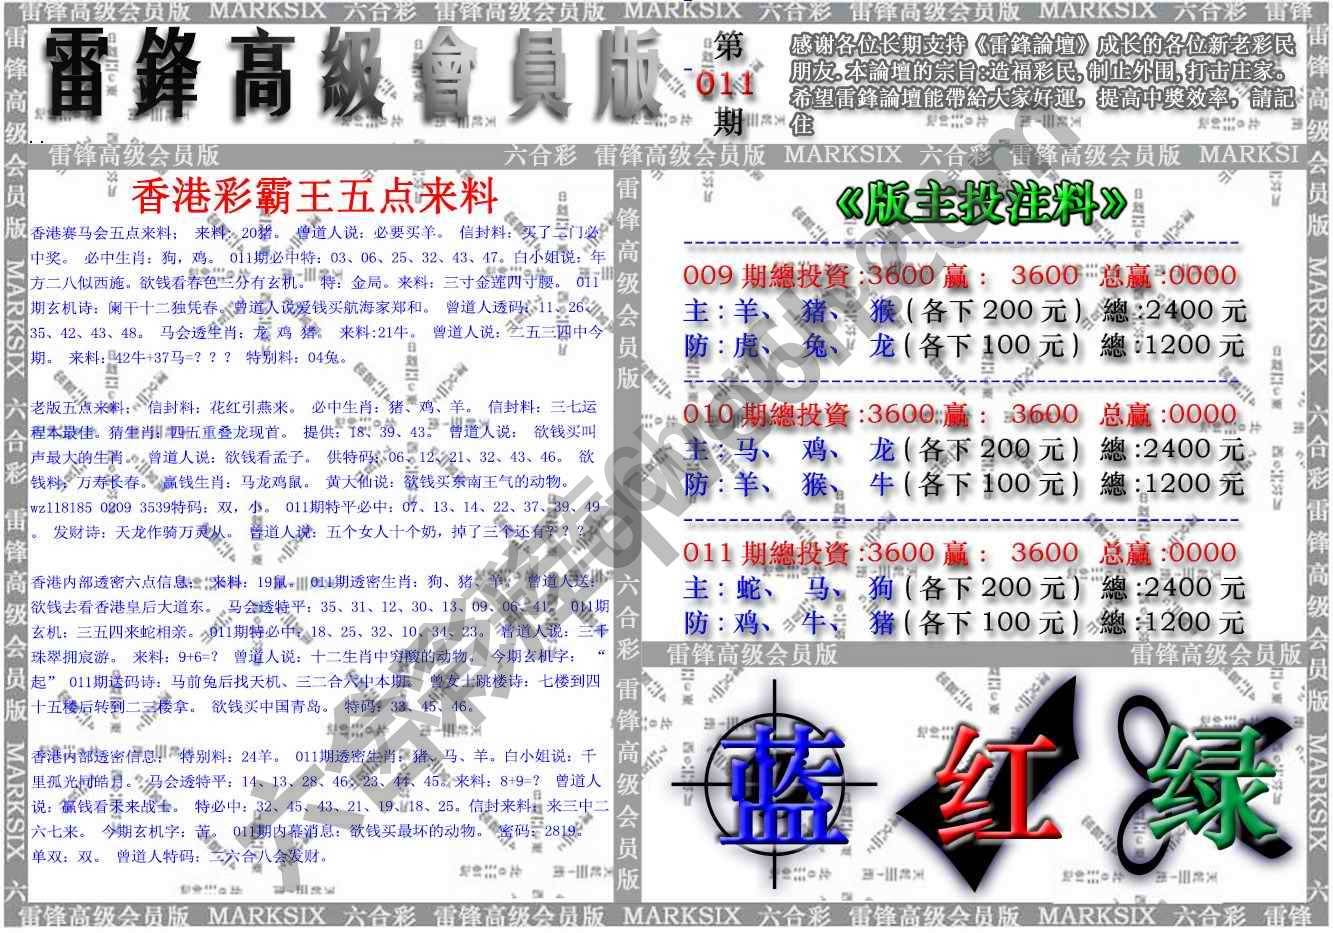 雷锋高级会员版 MARKSIX 六合彩 雷锋高级会员版 MARKSIX 六合彩 雷锋高级会员版 MARKSIX 六合彩 雷锋
雷鋒高級會員版
第
011
期
感谢各位长期支持《雷鋒論壇》成长的各位新老彩民
朋友.本論壇的宗旨:造福彩民,制止外围,打击庄家。
希望雷鋒論壇能帶給大家好運，提高中獎效率，請記
住
雷锋高级会员版
六合彩 雷锋高级会员版 MARKSIX 六合彩 雷锋高级会员版 MARKSI
香港彩霸王五点来料
香港赛马会五点来料； 来料：20猪。 曾道人说：必要买羊。 信封料：买了二门必
中奖。 必中生肖：狗，鸡。 011期必中特：03、06、25、32、43、47。白小姐说：年
方二八似西施。欲钱看春色三分有玄机。 特：金局。来料：三寸金莲四寸腰。 011
期玄机诗：阑干十二独凭春。曾道人说爱钱买航海家郑和。 曾道人透码：11、26、
35、42、43、48。 马会透生肖：龙 鸡 猪。 来料:21牛。 曾道人说：二五三四中今
期。 来料：42牛+37马=？？？ 特别料：04兔。
老版五点来料： 信封料：花红引燕来。 必中生肖：猪、鸡、羊。 信封料：三七运
程本最佳。猜生肖：四五重叠龙现首。 提供：18、39、43。 曾道人说： 欲钱买叫
声最大的生肖。 曾道人说：欲钱看孟子。 供特码：06、12、21、32、43、46。 欲
钱料：万寿长春。 赢钱生肖：马龙鸡鼠。 黄大仙说：欲钱买东南王气的动物。
wzl18185 0209 3539特码：双，小。 011期特平必中：07、13、14、22、37、39、49
。 发财诗：天龙作骑万灵从。 曾道人说：五个女人十个奶，掉了三个还有？？？
香港内部透密六点信息： 来料：19鼠。 011期透密生肖：狗、猪、羊。 曾道人送：
欲钱去看香港皇后大道东。 马会透特平：35、31、12、30、13、09、06、41。 011期
玄机：三五四来蛇相亲。 011期特必中：18、25、32、10、34、23。 曾道人说：三千
珠翠拥宸游。 来料：9+6=？ 曾道人说：十二生肖中穷酸的动物。 今期玄机字： “
起” 011期送码诗：马前兔后找天机、三二合六中本期。 曾女士跳楼诗：七楼到四
十五楼后转到二三楼拿。 欲钱买中国青岛。 特码：33、45、46。
香港内部透密信息： 特别料：24羊。 011期透密生肖：猪、马、羊。白小姐说：千
里孤光同皓月。 马会透特平：14、13、28、46、23、44、45。来料：8+9=？ 曾道人
说：赢钱看未来战士。 特必中：32、45、43、21、19、18、25。信封来料：来三中二
六七来。 今期玄机字：苦。 011期内幕消息：欲钱买最坏的动物。 密码：2819。
单双：双。 曾道人特码：二六合八会发财。
《版主投注料》
009 期總投資:3600 赢： 3600 总赢:0000
主：羊、 猪、 猴(各下 200 元) 總:2400 元
防：虎、 兔、 龙(各下 100 元) 總:1200 元
010 期總投資:3600 赢： 3600 总赢:0000
主：马、 鸡、 龙(各下 200 元) 總:2400 元
防：羊、 猴、 牛(各下 100 元) 總:1200 元
011 期總投資:3600 赢： 3600 总赢:0000
主：蛇、 马、 狗(各下 200 元) 總:2400 元
防：鸡、 牛、 猪(各下 100 元) 總:1200 元
雷锋高级会员版
雷锋高级会员版
蓝 红 绿
雷锋高级会员版 MARKSIX 六合彩 雷锋高级会员版 MARKSIX 六合彩 雷锋高级会员版 MARKSIX 六合彩 雷锋